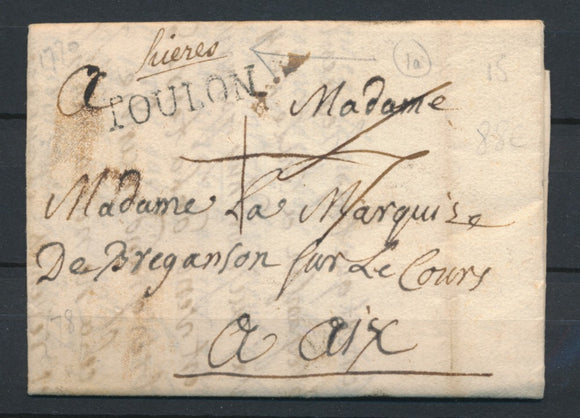 1770
hieres
1a
15
a
TOULON
Madame
88c
Madame La Marquize
De Breganson sur Le Cours
78
a aix